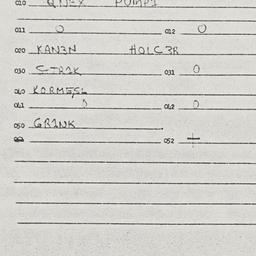 010 QNEX PUMPI
011 0 012 0
020 KAN3N HOLC3R
030 STR1K 031 0
040 KORMESL
041 0 042 0
050 GR1NK
052